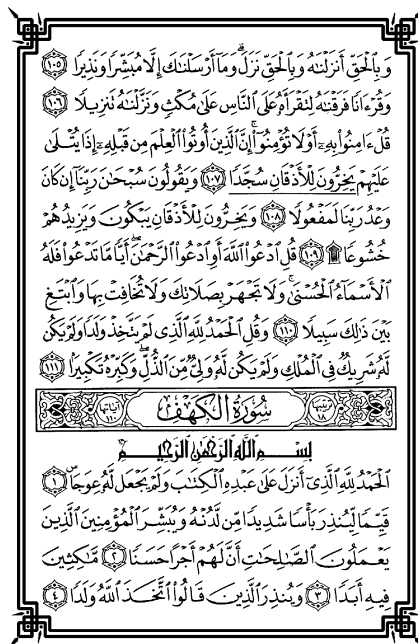 وَبِٱلْحَقِّ أَنزَلْنَٰهُ وَبِٱلْحَقِّ نَزَلَ ۗ وَمَآ أَرْسَلْنَٰكَ إِلَّا مُبَشِّرًا وَنَذِيرًا ۝١٠٥
وَقُرْءَانًا فَرَقْنَٰهُ لِتَقْرَأَهُۥ عَلَى ٱلنَّاسِ عَلَىٰ مُكْثٍ وَنَزَّلْنَٰهُ تَنزِيلًا ۝١٠٦
قُلْ ءَامِنُوا۟ بِهِۦٓ أَوْ لَا تُؤْمِنُوٓا۟ ۚ إِنَّ ٱلَّذِينَ أُوتُوا۟ ٱلْعِلْمَ مِن قَبْلِهِۦٓ إِذَا يُتْلَىٰ
عَلَيْهِمْ يَخِرُّونَ لِلْأَذْقَانِ سُجَّدًا ۝١٠٧ وَيَقُولُونَ سُبْحَٰنَ رَبِّنَآ إِن كَانَ
وَعْدُ رَبِّنَا لَمَفْعُولًا ۝١٠٨ وَيَخِرُّونَ لِلْأَذْقَانِ يَبْكُونَ وَيَزِيدُهُمْ
خُشُوعًا ۩ ۝١٠٩ قُلِ ٱدْعُوا۟ ٱللَّهَ أَوِ ٱدْعُوا۟ ٱلرَّحْمَٰنَ ۖ أَيًّا مَّا تَدْعُوا۟ فَلَهُ
ٱلْأَسْمَآءُ ٱلْحُسْنَىٰ ۚ وَلَا تَجْهَرْ بِصَلَاتِكَ وَلَا تُخَافِتْ بِهَا وَٱبْتَغِ
بَيْنَ ذَٰلِكَ سَبِيلًا ۝١١٠ وَقُلِ ٱلْحَمْدُ لِلَّهِ ٱلَّذِى لَمْ يَتَّخِذْ وَلَدًا وَلَمْ يَكُن
لَّهُۥ شَرِيكٌ فِى ٱلْمُلْكِ وَلَمْ يَكُن لَّهُۥ وَلِىٌّ مِّنَ ٱلذُّلِّ ۖ وَكَبِّرْهُ تَكْبِيرًا ۝١١١
ترتيبها ١٨ سُورَةُ ٱلْكَهْفِ آياتها ١١٠
بِسْمِ ٱللَّهِ ٱلرَّحْمَٰنِ ٱلرَّحِيمِ
ٱلْحَمْدُ لِلَّهِ ٱلَّذِىٓ أَنزَلَ عَلَىٰ عَبْدِهِ ٱلْكِتَٰبَ وَلَمْ يَجْعَل لَّهُۥ عِوَجَا ۜ ۝١
قَيِّمًا لِّيُنذِرَ بَأْسًا شَدِيدًا مِّن لَّدُنْهُ وَيُبَشِّرَ ٱلْمُؤْمِنِينَ ٱلَّذِينَ
يَعْمَلُونَ ٱلصَّٰلِحَٰتِ أَنَّ لَهُمْ أَجْرًا حَسَنًا ۝٢ مَّٰكِثِينَ
فِيهِ أَبَدًا ۝٣ وَيُنذِرَ ٱلَّذِينَ قَالُوا۟ ٱتَّخَذَ ٱللَّهُ وَلَدًا ۝٤